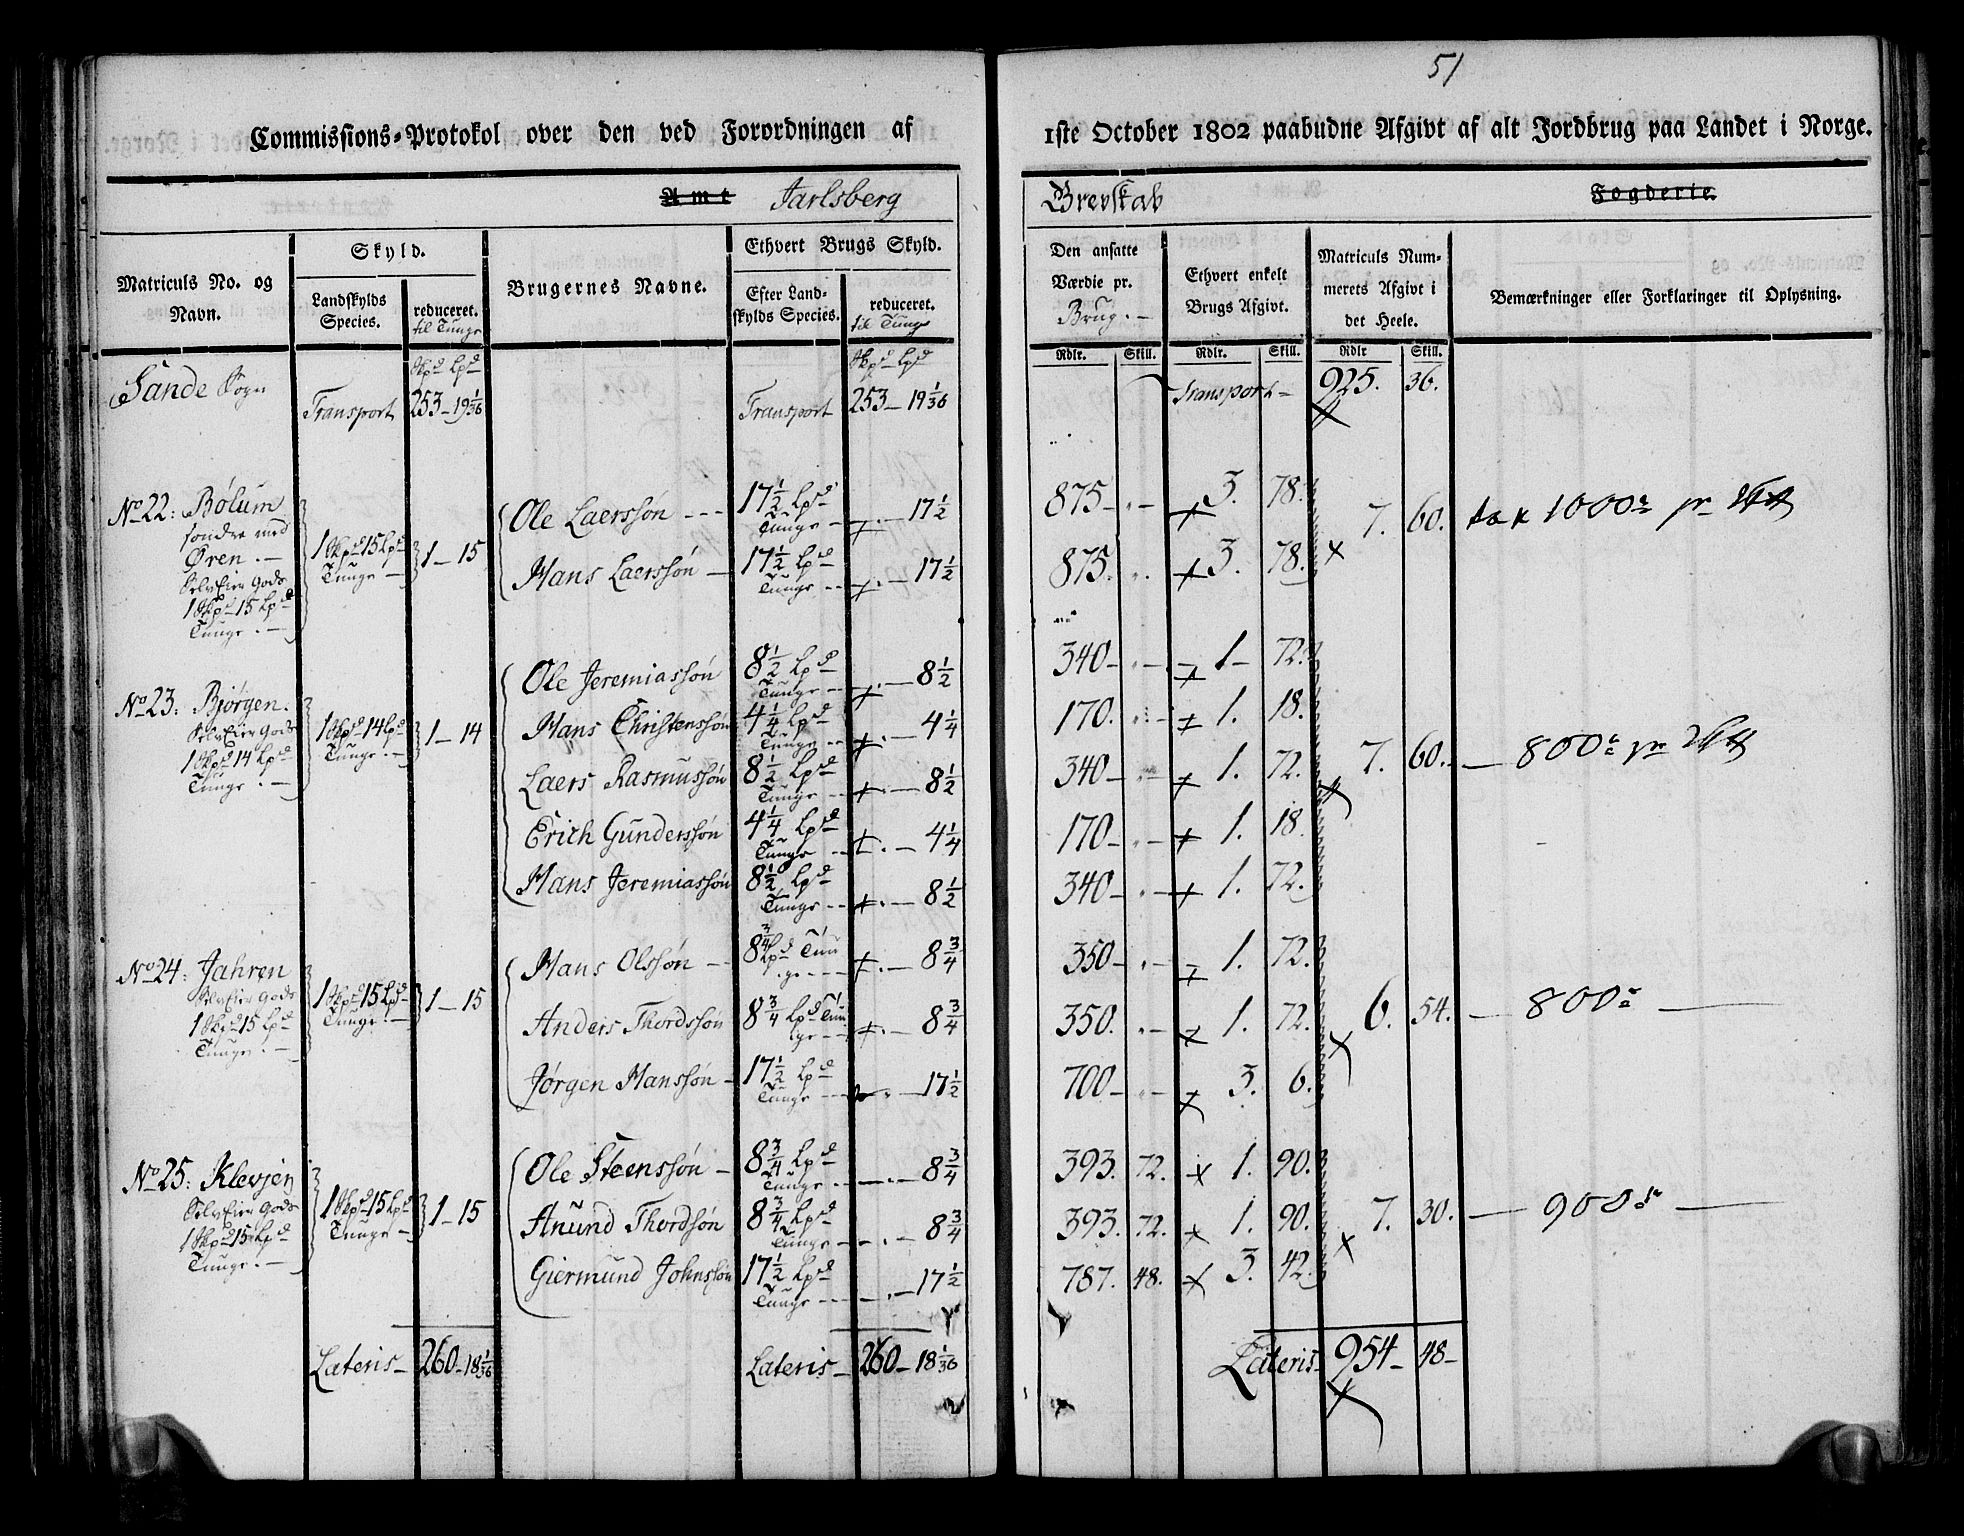 51
Commissions-Protokol over den ved Forordningen af 1ste October 1802 paabudne Afgivt af alt Jordbrug paa Landet i Norge.
Amt Jarlsberg Grevskab Fogderie.
Matriculs No. og Navn.
Skyld.
Landskylds Species.
reduceret. til Tunge
Brugernes Navne.
Ethvert Brugs Skyld.
Efter Landskylds Species.
reduceret. til Tunge
Den ansatte Værdie pr. Brug.
Ethvert enkelt Brugs Afgivt.
Matriculs Nummerets Afgivt i det Heele.
Bemærkninger eller Forklaringer til Oplysning.
Skpd Lpd Skpd Lpd Rdlr. Skill. Rdlr. Skill. Rdlr Skill.
Sande Sogn Transport 253-19 1/36 Transport 253-19 1/36 Transport- 925. 36.
No 22: Bølum
søndre med
Øren.-
SelvEier Gods
1 Skpd 15 Lpd
Tunge.-
1 Skpd 15 Lpd Tunge - 1-15
Ole Laerssøn --- 17 1/2 Lpd Tunge - 17 1/2 875- 3. 78.
Hans Laerssøn - 17 1/2 Lpd Tunge -- 17 1/2 875. 3. 78.
7. 60. 1000
No 23: Bjørgen.
SelvEier Gods
1 Skpd 14 Lpd
Tunge.-
1 Skpd 14 Lpd Tunge.- 1-14
Ole Jeremiassøn 8 1/2 Lpd Tunge -- 8 1/2 340- 1- 72.
Hans Christenssøn 4 1/4 Lpd Tunge -- 4 1/4 170. 1. 18.
Laers Rasmussøn 8 1/2 Lpd Tunge -- 8 1/2 340- 1. 72.
7. 60.- 800
Erich Gunderssøn 4 1/4 Lpd Tunge -- 4 1/4 170- 1. 18.
Hans Jeremiassøn 8 1/2 Lpd Tunge -- 8 1/2 340- 1. 72.
No 24: Jahren
SelvEier Gods
1 Skpd 15 Lpd
Tunge.-
1 Skpd 15 Lpd Tunge.- 1-15
Hans Olssøn -- 8 3/4 Lpd Tunge --- 8 3/4 350- 1. 72.
Anders Thordssøn 8 3/4 Lpd Tunge -- 8 3/4 350. 1. 72.
6. 54. - 800
Jørgen Hanssøn - 17 1/2 Lpd Tunge --- 17 1/2 700- 3. 6.
No 25: Klevjen
SelvEier Gods
1 Skpd 15 Lpd
Tunge.-
1 Skpd 15 Lpd Tunge - 1-15
Ole Steenssøn - 8 3/4 Lpd Tunge -- 8 3/4 393. 72. 1. 90.
Anund Thordsøn 8 3/4 Lpd Tunge -- 8 3/4 393. 72. 1. 90.
7. 30. - 900
Giermund Johnssøn 17 1/2 Lpd Tunge --- 17 1/2 787. 48. 3. 42.
Lateris- 260-18 1/36 Lateris- 260-18 1/36 Lateris- 954- 48-